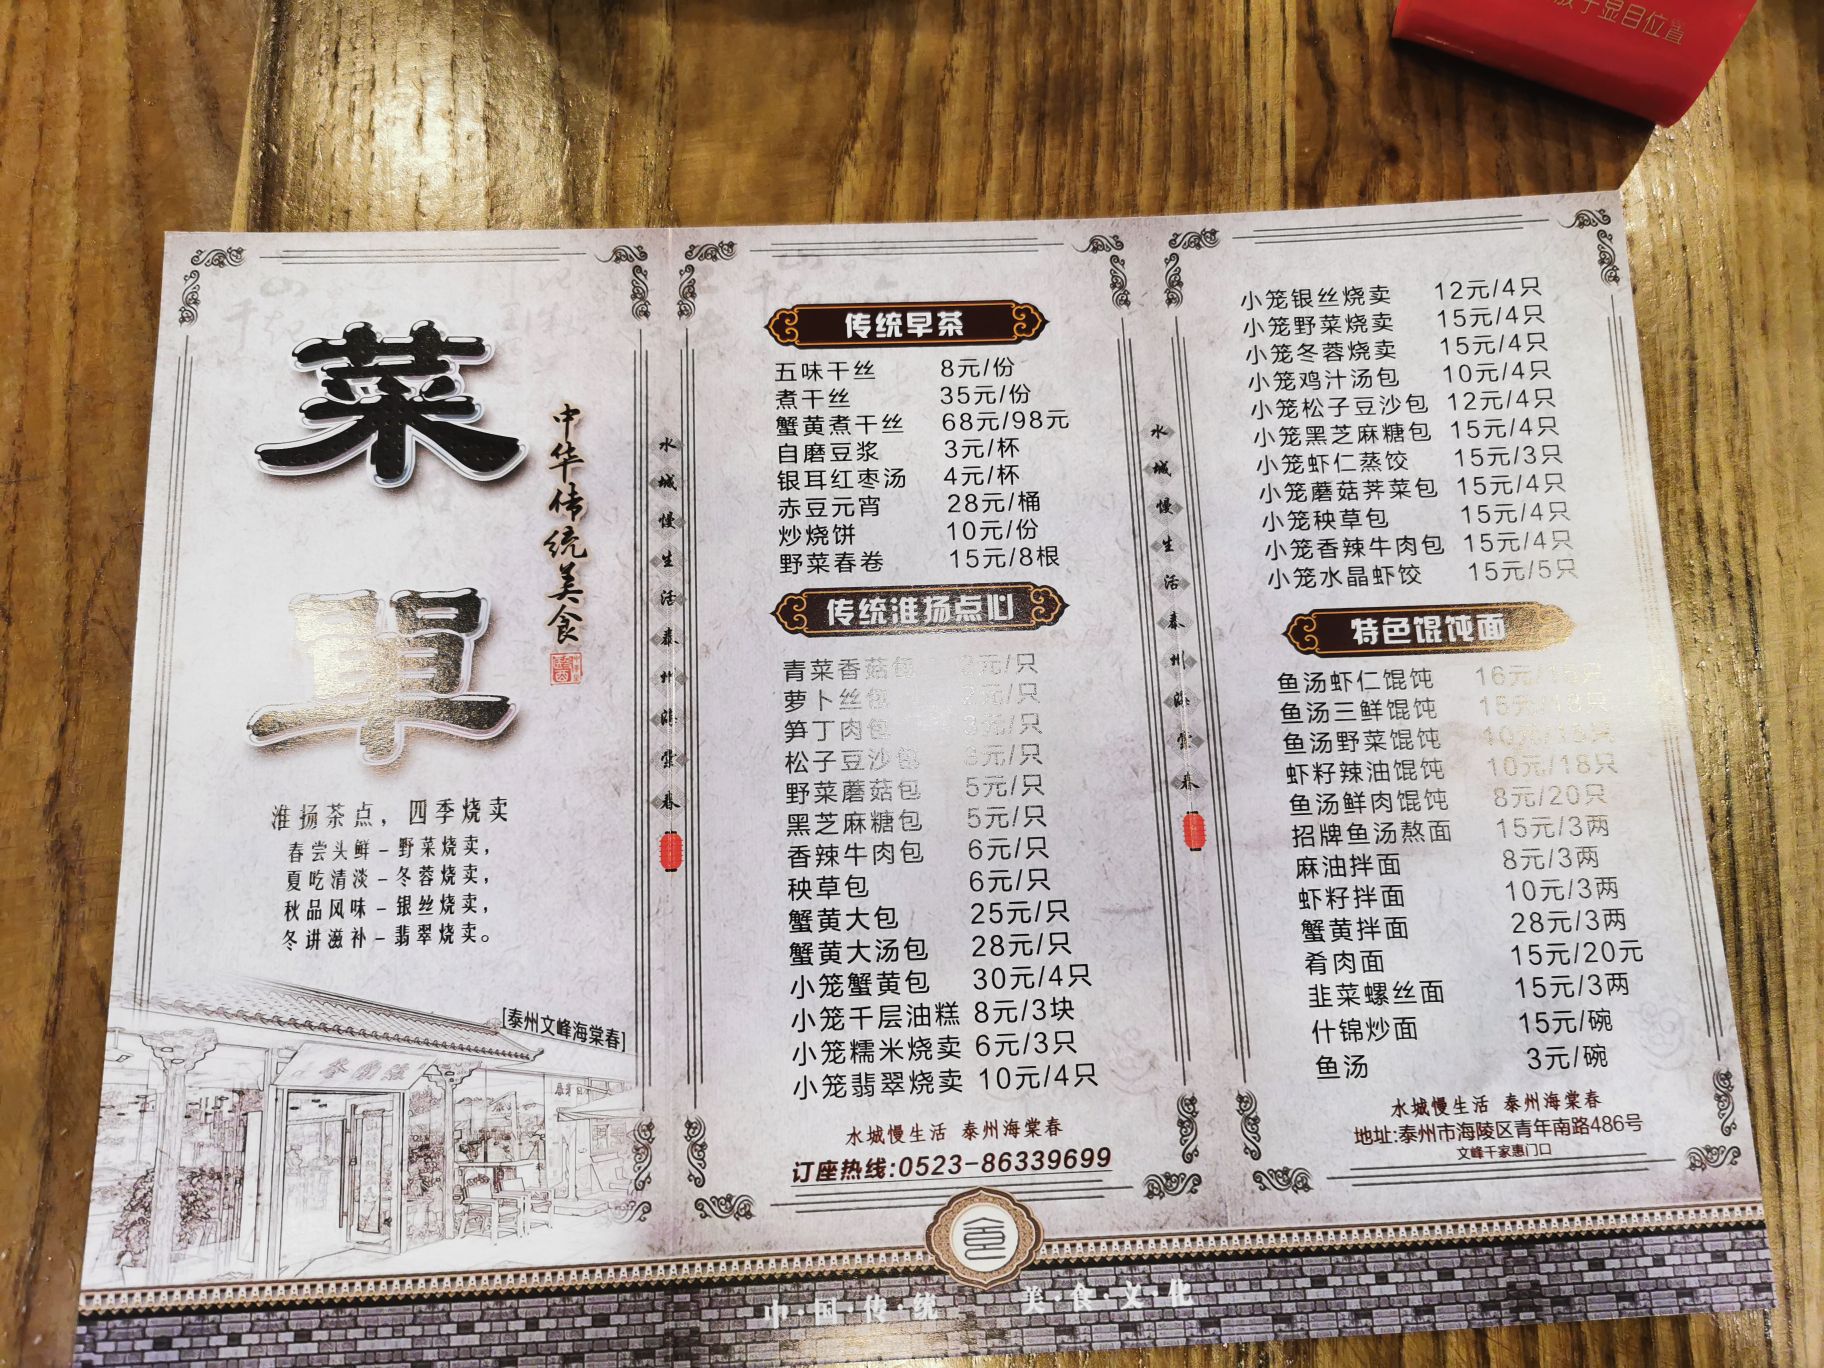 版于显目位置
菜
單
中华传统美食
淮扬茶点，四季烧卖
春尝头鲜－野菜烧卖，
夏吃清淡－冬蓉烧卖，
秋品风味－银丝烧卖，
冬讲滋补－翡翠烧卖。
[泰州文峰海棠春]
水城慢生活泰州海棠春
传统早茶
五味干丝 8元/份
煮干丝 35元/份
蟹黄煮干丝 68元/98元
自磨豆浆 3元/杯
银耳红枣汤 4元/杯
赤豆元宵 28元/桶
炒烧饼 10元/份
野菜春卷 15元/8根
传统淮扬点心
青菜香菇包 2元/只
萝卜丝包 2元/只
笋丁肉包 3元/只
松子豆沙包 3元/只
野菜蘑菇包 5元/只
黑芝麻糖包 5元/只
香辣牛肉包 6元/只
秧草包 6元/只
蟹黄大包 25元/只
蟹黄大汤包 28元/只
小笼蟹黄包 30元/4只
小笼千层油糕 8元/3块
小笼糯米烧卖 6元/3只
小笼翡翠烧卖 10元/4只
水城慢生活 泰州海棠春
订座热线:0523-86339699
水城慢生活泰州海棠春
小笼银丝烧卖 12元/4只
小笼野菜烧卖 15元/4只
小笼冬蓉烧卖 15元/4只
小笼鸡汁汤包 10元/4只
小笼松子豆沙包 12元/4只
小笼黑芝麻糖包 15元/4只
小笼虾仁蒸饺 15元/3只
小笼蘑菇荠菜包 15元/4只
小笼秧草包 15元/4只
小笼香辣牛肉包 15元/4只
小笼水晶虾饺 15元/5只
特色馄饨面
鱼汤虾仁馄饨 16元/
鱼汤三鲜馄饨 15元/
鱼汤野菜馄饨 10元/15只
虾籽辣油馄饨 10元/18只
鱼汤鲜肉馄饨 8元/20只
招牌鱼汤熬面 15元/3两
麻油拌面 8元/3两
虾籽拌面 10元/3两
蟹黄拌面 28元/3两
肴肉面 15元/20元
韭菜螺丝面 15元/3两
什锦炒面 15元/碗
鱼汤 3元/碗
水城慢生活 泰州海棠春
地址:泰州市海陵区青年南路486号
文峰千家惠门口
中·国·传·统 美·食·文·化